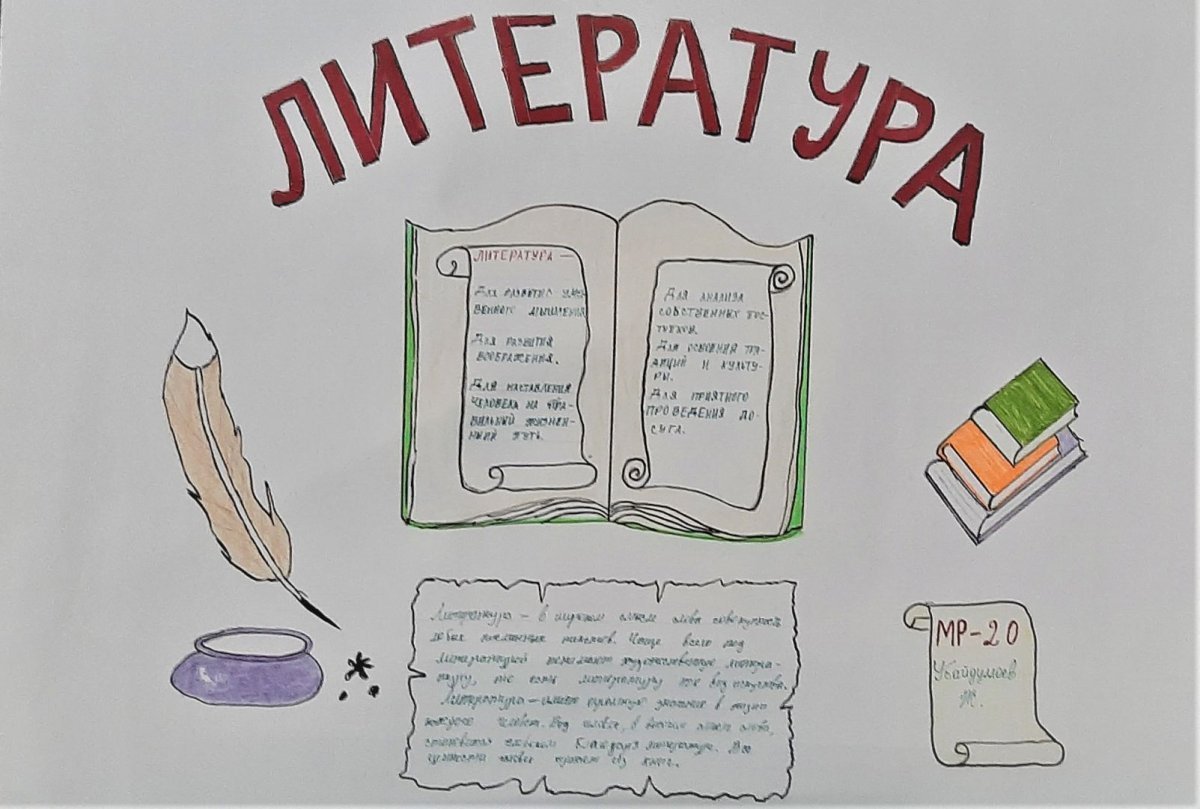 ЛИТЕРАТУРА
ЛИТЕРАТУРА —
Для развития умс-
венного мышления
Для развития
воображения.
Для наставления
человека на пра-
вильный жизнен-
ный путь.
Для анализа
собственных пос-
тупков.
Для освоения тра-
диций и культу-
ры.
Для приятного
проведения до-
суга.
Литература – в широком смысле слова совокупность
любых письменных текстов. Чаще всего под
литературой понимают художественную литера-
туру, то есть литературу как вид искусства.
Литература – имеет огромное значение в жизни
каждого человека. Ведь человек, в смысле слова,
становится человеком благодаря литературе. Все
ценности человек черпает из книг.
МР-20
Убайдумоев
Ж.